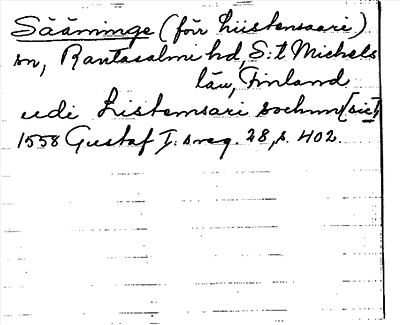 Sääminge (för Liistensaari)
sn, Rantasalmi hd, S:t Michels
län, Finland
udi Listensari sochnn [sic]
1558 Gustaf I:s reg. 28, s. 402.